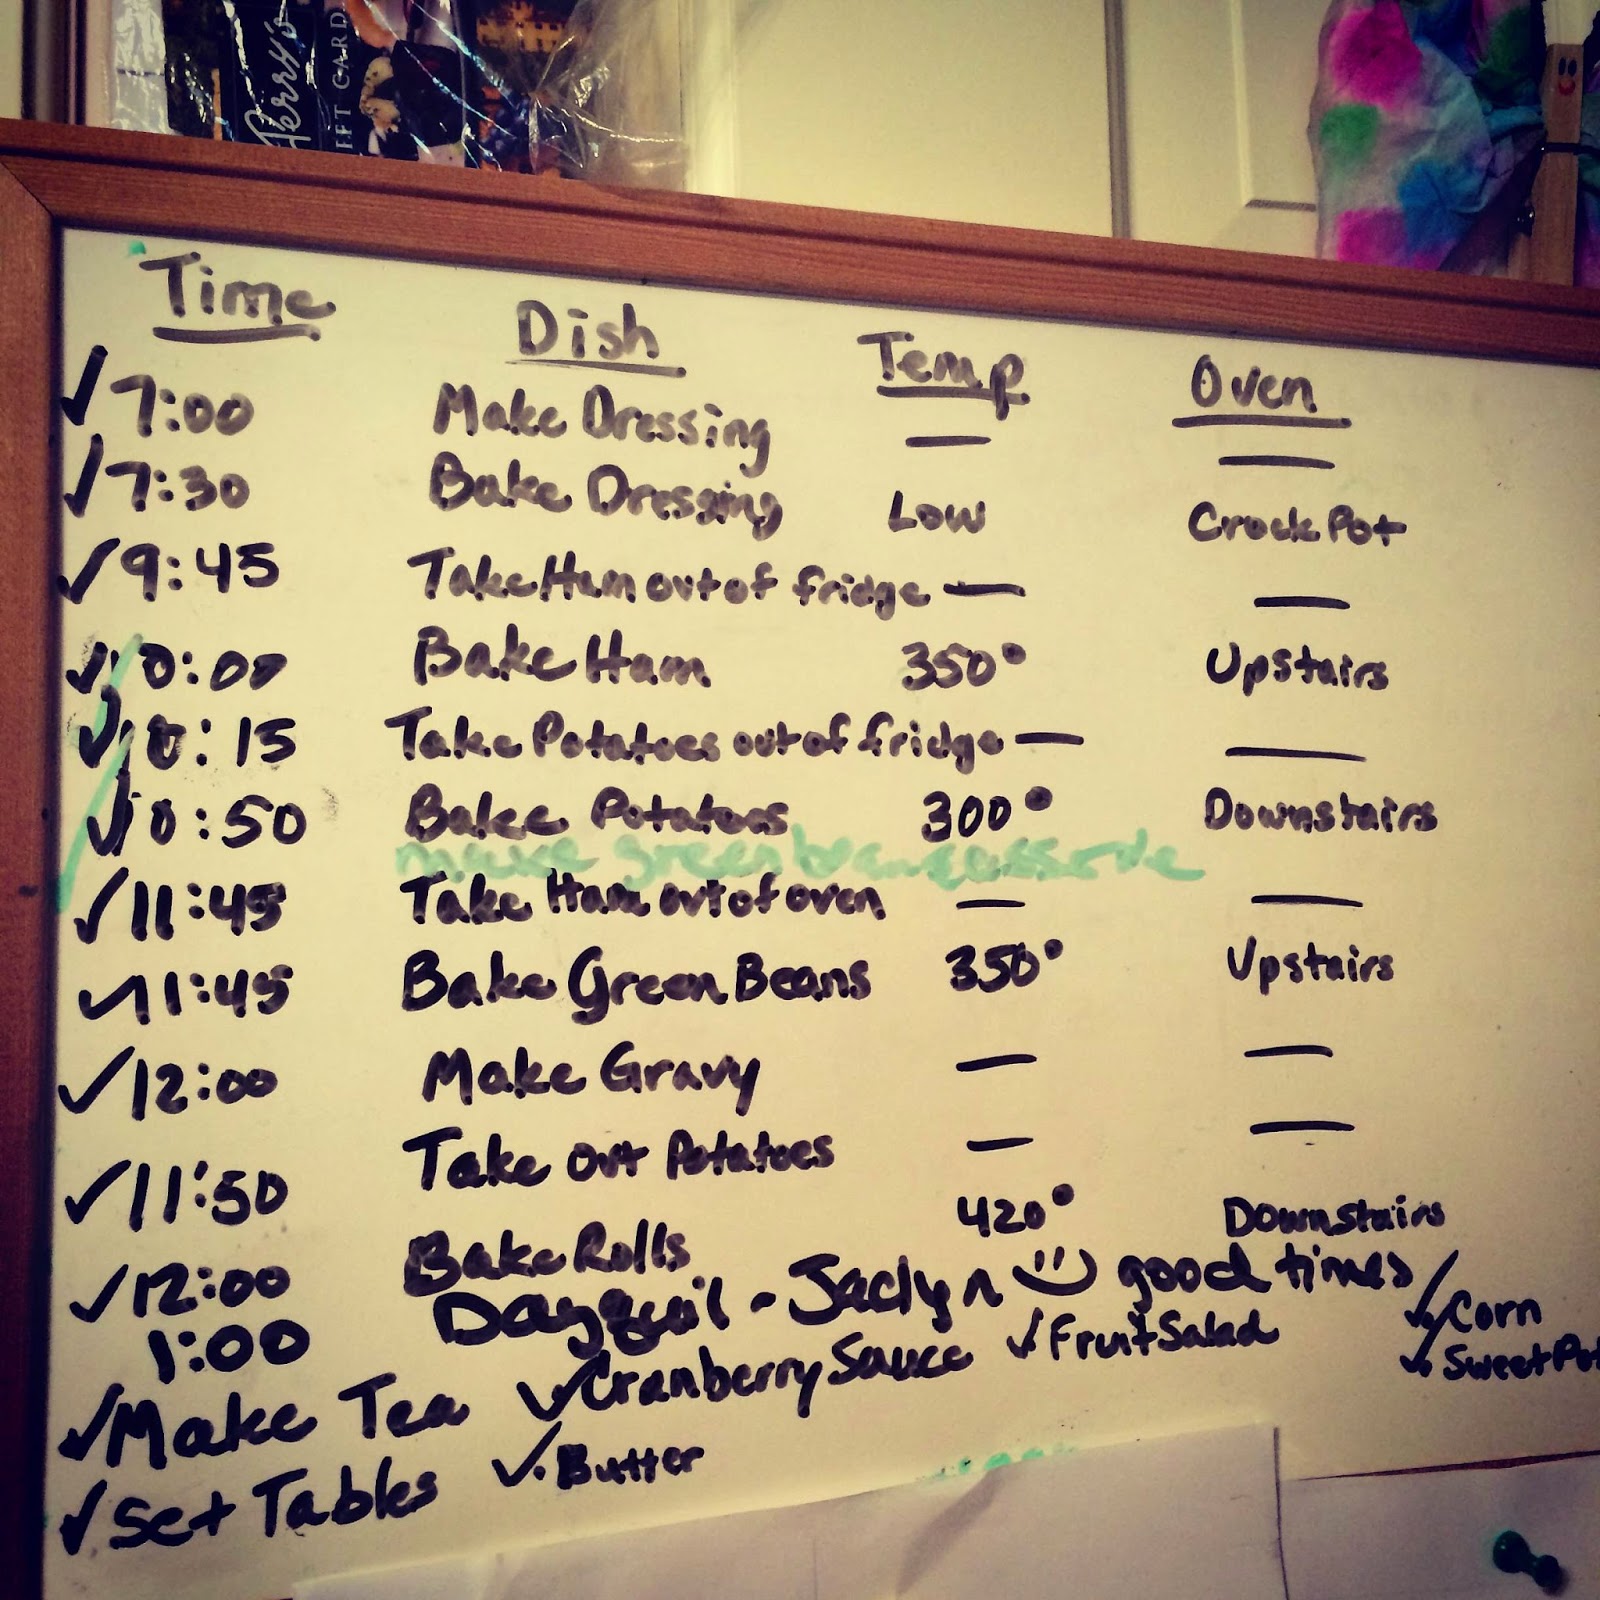 Perry's
EFT CARD
Time Dish Temp Oven
7:00 Make Dressing — —
7:30 Bake Dressing Low Crock Pot
9:45 Take Ham out of fridge — —
10:00 Bake Ham 350° Upstairs
10:15 Take Potatoes out of fridge — —
10:50 Bake Potatoes 300° Downstairs
make green bean casserole
11:45 Take Ham out of oven — —
11:45 Bake Green Beans 350° Upstairs
12:00 Make Gravy — —
11:50 Take Out Potatoes — —
12:00 Bake Rolls 420° Downstairs
1:00 Dayquil - Jaclyn good times
Make Tea Cranberry Sauce Fruit Salad Corn
Sweet Pot
Set Tables Butter